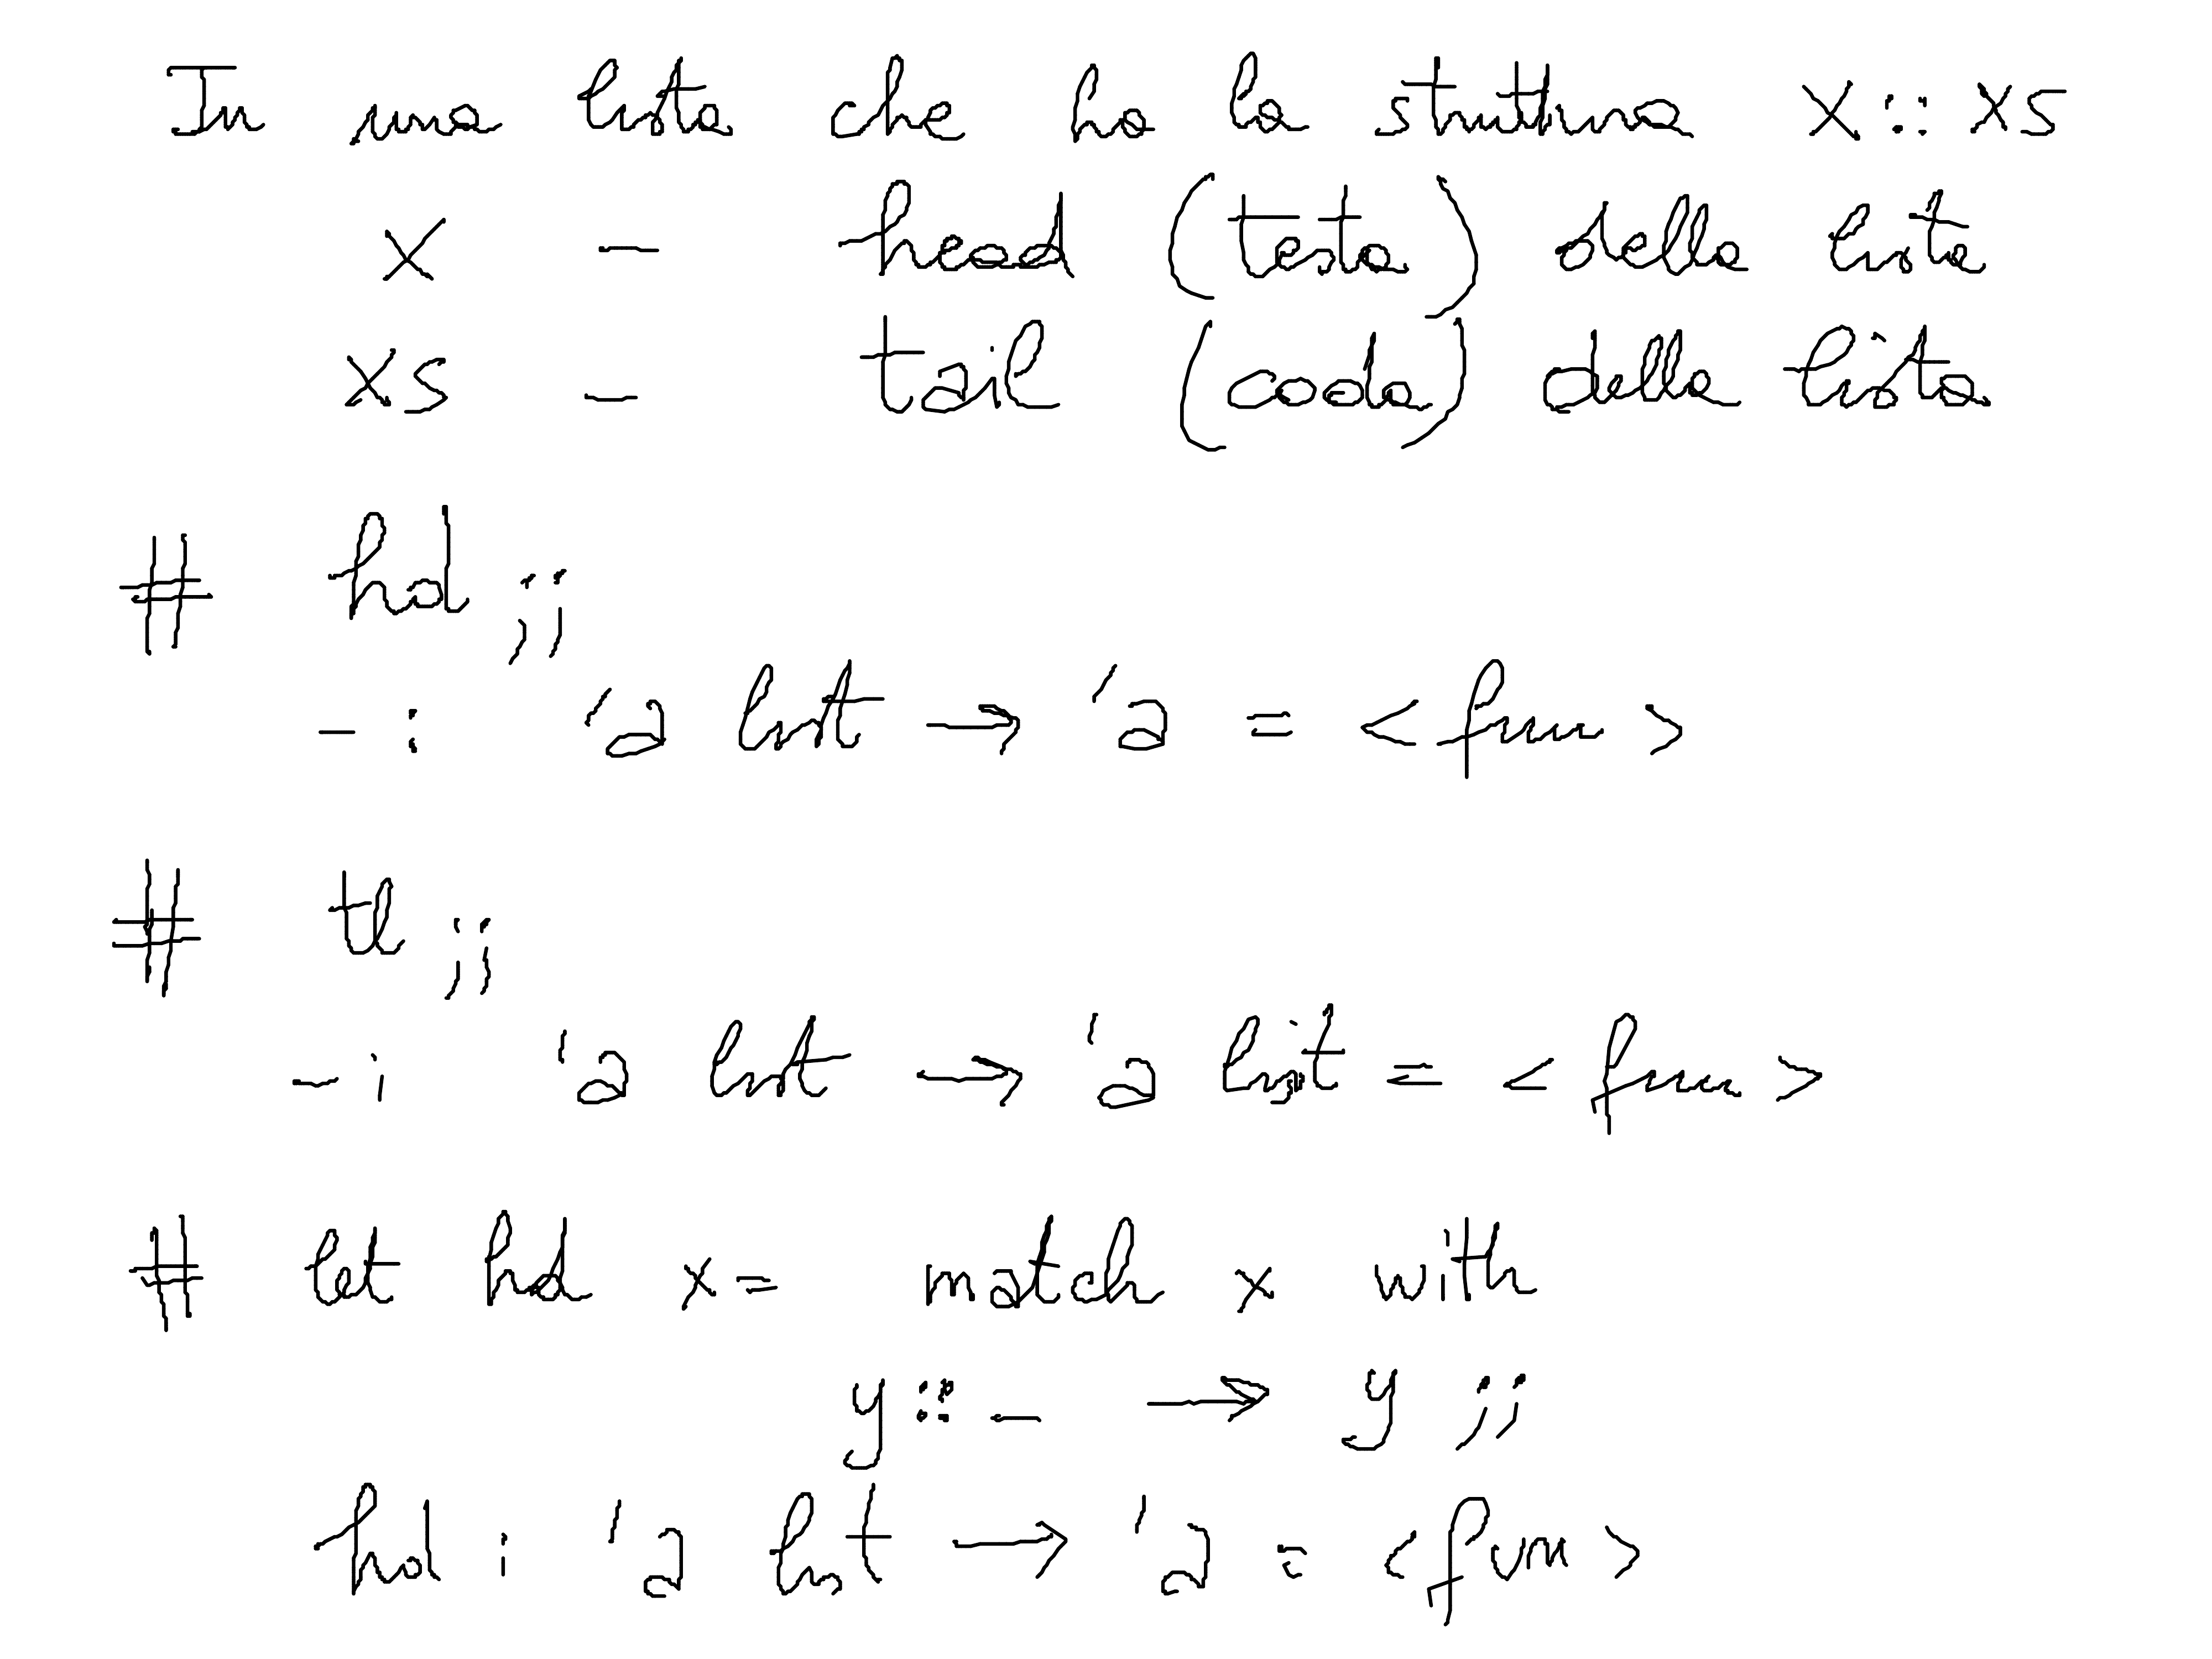 In una lista che ha la struttura x::xs
x - head (testa) della lista
xs - tail (coda) della lista
# hd ;;
- : 'a list → 'a = <fun>
# tl ;;
- : 'a list → 'a list = <fun>
# let hd x = match x with
y::_ → y ;;
hd : 'a list → 'a = <fun>